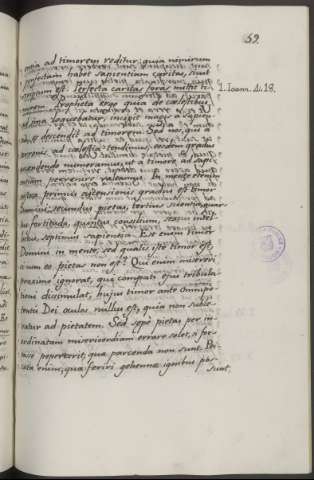 59.
entia ad timorem reditur: quia nimirum
perfectam habet sapientiam caritas, sicut
scriptum est. Perfecta caritas foras mittit ti-
1. Joann. 4. 18.
morem. Propheta ergo quia de cælestibus
ad ima loquebatur, incipit magis a sapien-
tia, & descendit ad timorem. Sed nos, qui a
terrenis ad cælestia tendimus, eosdem gradus
ascendendo numeramus, ut a timore ad sapi-
entiam pervenire valeamus. In mente etenim
nostra primus ascensionis gradus est timor
Domini, secundus pietas, tertius scientia, quar-
tus fortitudo, quintus consilium, sextus intel-
lectus, septimus sapientia. Est enim timor
Domini in mente, sed qualis iste timor est,
si cum eo pietas non est? Qui enim misereri
proximo ignorat, qui compati ejus tribulatio-
ni dissimulat, hujus timor ante Omnipo-
tentis Dei oculos nullus est, quia non suble-
vatur ad pietatem. Sed sæpe pietas per in-
ordinatam misericordiam errare solet, si for-
tasse pepercerit, quæ parcenda non sunt. Pec-
cata enim, quæ feriri gehennæ ignibus pos-
sunt,